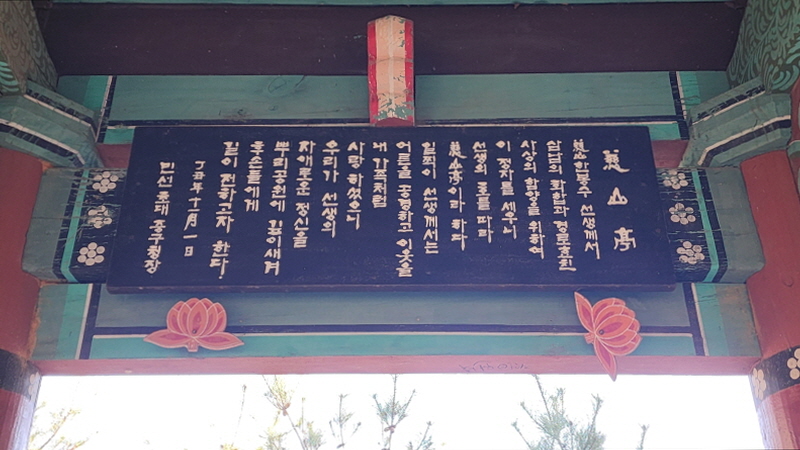 山亭
선생께서
화합과 경로효친
사상의 함양을 위하여
이 정자를 세우니
선생의 호를 따라
山亭이라 하다
일찍이 선생께서는
어른을 공경하고 이웃을
내 가족처럼
사랑 하셨으니
우리가 선생의
자애로운 정신을
뿌리공원에 깊이새겨
후손들에게
길이 전하고자 한다.
丁丑年 十一月 一日
민선 초대 중구청장